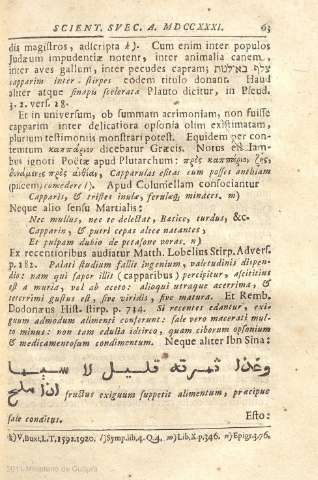 SCIENT. SVEC. A. MDCCXXXI. 63
dis magistros, adscripta k). Cum enim inter populos
Judæum impudentiæ notent, inter animalia canem,
inter aves gallum, inter pecudes capram;
capparim inter stirpes eodem titulo donant. Haud
aliter atque sinapis scelerata Plauto dicitur, in Pseud.
3. 2. vers. 28.
Et in universum, ob summam acrimoniam, non fuisse
capparim inter delicatiora opsonia olim existimatam,
plurium testimoniis monstrari potest. Equidem per con-
temtum καππάριον dicebatur Græcis. Notus est Jam-
bus ignoti Poëtæ apud Plutarchum: πρὸς καππάριον ζῇς,
δυνάμενος πρὸς ἀνθίαν, Capparulas esitas cum posses anthiam
(piscem) comedere l). Apud Columellam consociantur
Capparis, & tristes inulæ, ferulæq; minaces. m)
Neque alio sensu Martialis:
Nec mullus, nec te delectat, Bætice, turdus, &c.
Capparin, & putri cepas alece natantes,
Et pulpam dubio de petasone voras. n)
Ex recentioribus audiatur Matth. Lobelius Stirp. Advers.
p. 182. Palati studium fallit ingenium, valetudinis dispen-
dio: nam qui sapor illi (capparibus) percipitur, ascititius
est a muria, vel ab aceto: alioqui utraque acerrima, &
teterrimi gustus est, sive viridis, sive matura. Et Remb.
Dodonæus Hist. stirp. p. 734. Si recentes edantur, exi-
guum admodum alimenti conferunt: sale vero macerati mul-
to minus: non tam edulia idcirco, quam ciborum opsonium
& medicamentosum condimentum. Neque aliter Ibn Sina:
وغذا ثمرته قليل لا سيما
اذا ملح fructus exiguum suppetit alimentum, præcipue
sale conditus. Esto:
k) V. Buxt. L. T. 1592. 1920. l) Symp. lib. 4. Q. 4. m) Lib. X. p. 346. n) Epigr. 3. 76.
2011 Ministerio de Cultura